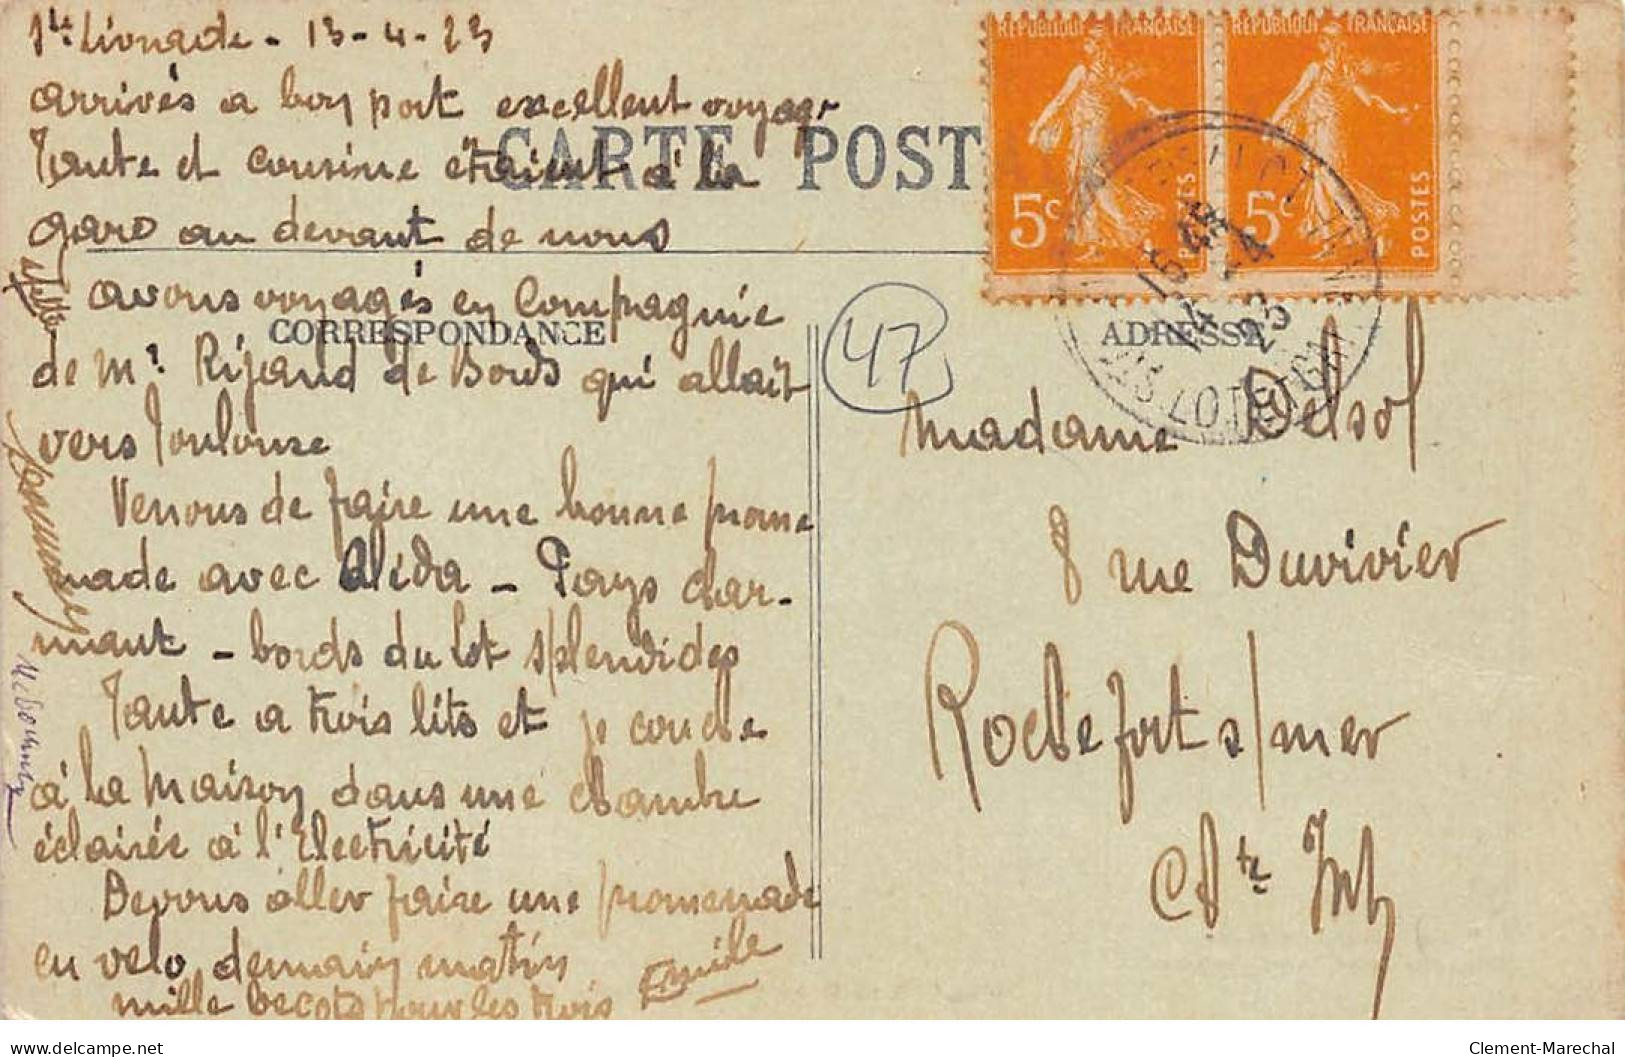 Ste Livrade - 13-4-23
arrivés a bon port excellent voyage
Tante et cousine étaient à la
gare au devant de nous
avons voyagés en Compagnie
de Mr Rigaud de Bords qui allait
vers Toulouse
Venons de faire une bonne prome
nade avec Aléda - Pays char-
mant - bords du Lot splendides
Tante a trois lits et je couche
à la maison dans une chambre
éclairée à l'Electricité
Devons aller faire une promenade
en velo demain matin
mille becots pour les trois
Emile
CARTE POST
CORRESPONDANCE
ADRESSE
47
REPUBLIQUE FRANÇAISE
5c
POSTES
REPUBLIQUE FRANÇAISE
5c
POSTES
LOT ET GAR
Madame Delsol
8 rue Duvivier
Rochefort s/mer
Chte Infre
delcampe.net
Clement-Marechal